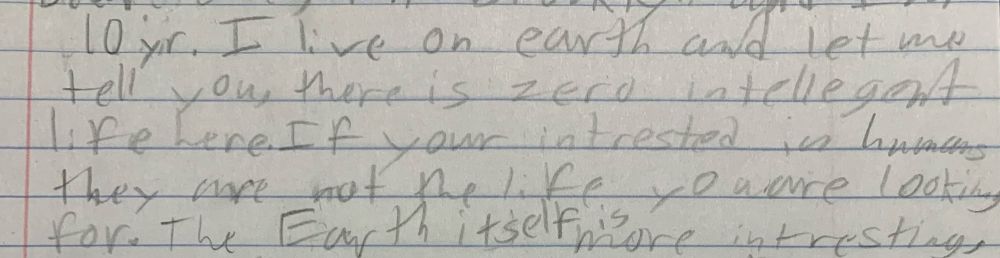 10 yr. I live on earth and let me
tell you, there is zero intellegent
life here. If your intrested in humans
they are not the life you are looking
for. The Earth itself is more intresting,